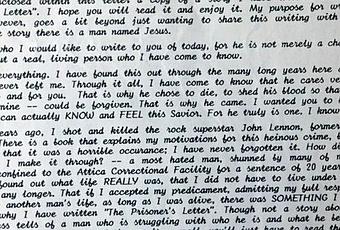 nclosed within this letter a copy of a story
Letter". I hope you will read it and enjoy it. My purpose for w
ever, goes a bit beyond just wanting to share this writing with
e story there is a man named Jesus.
who I would like to write to you of today, for he is not merely a cha
ut a real, living person who I have come to know.
verything. I have found this out through the many long years here
ever left me. Through it all, I have come to know that he cares ve
and for you. That is why he chose to die, to shed his blood so tha
mine -- could be forgiven. That is why he came. I wanted you to
can actually KNOW and FEEL this Savior. For he truly is one. I know
ears ago, I shot and killed the rock superstar John Lennon, former
There is a book that explains my motivations for this heinous crime, b
that it was a horrible occurance; I have never forgotten it. How d
I make it through? -- a most hated man, shunned by many of m
confined to the Attica Correctional Facility for a sentence of 20 year
found out what life REALLY was, that I did not have to live under
any longer. That if I accepted my predicament, admitting my full resp
another man's life, as long as I was alive, there was SOMETHING I
why I have written "The Prisoner's Letter". Though not a story alo
ss tells of a man who is struggling with who he is and what he be
just have to read th